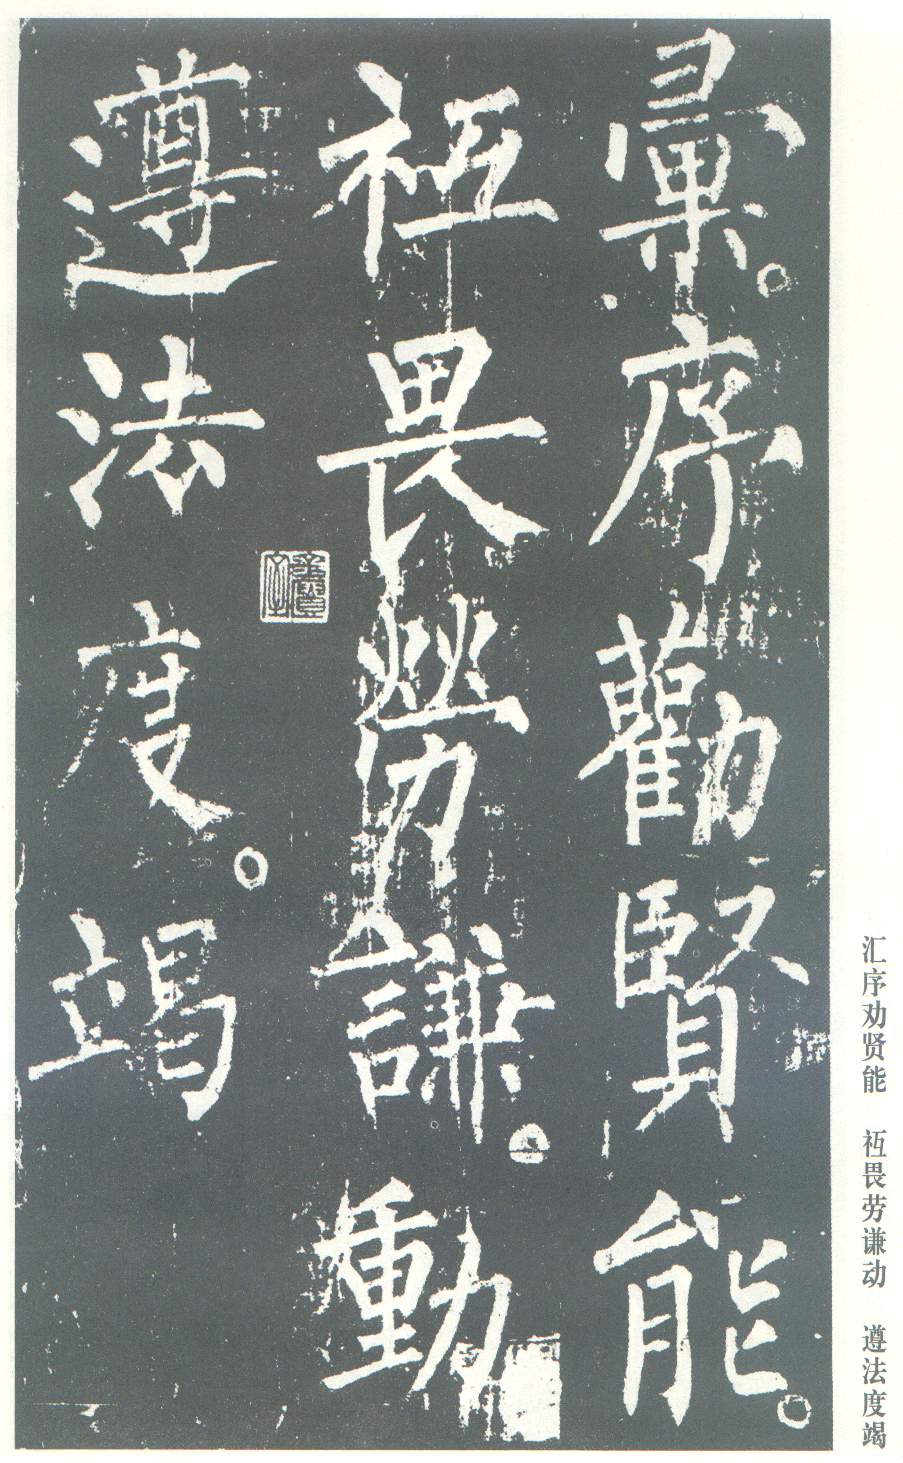 彙序勸賢能
祗畏勞謙動
遵法度竭
汇序劝贤能　祗畏劳谦动　遵法度竭